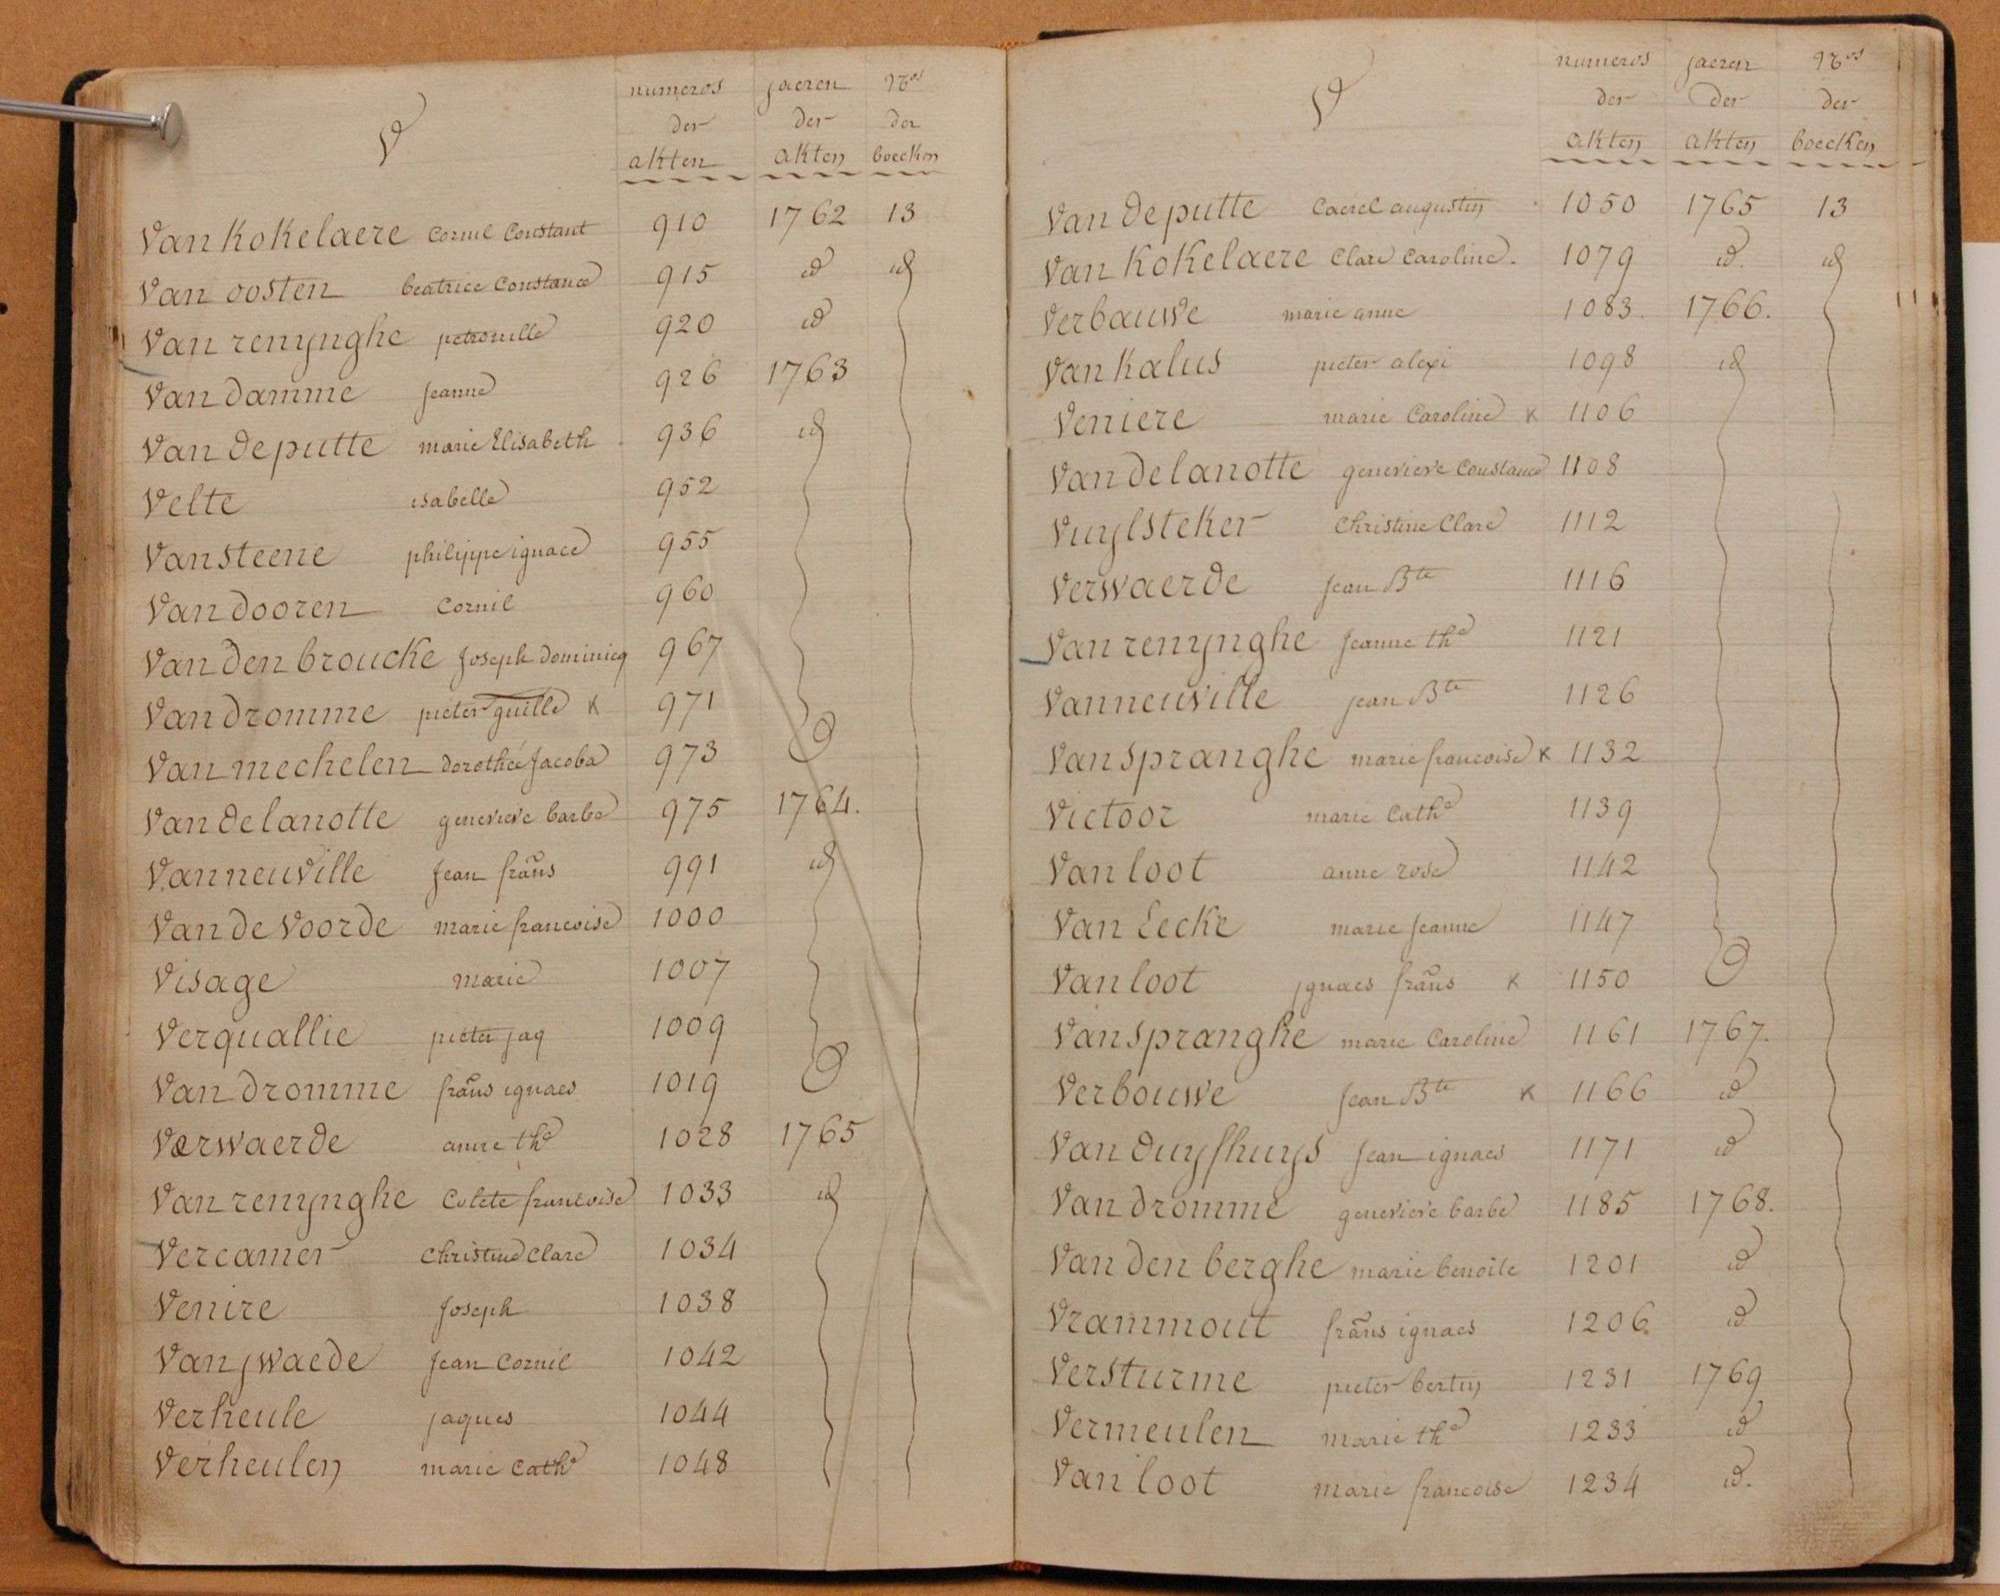 V
numeros jaeren Nros
der der der
akten akten boecken
Vankokelaere Cornil Constant 910 1762 13
Van oosten beatrice Constance 915 id id
Van renynghe petronille 920 id
Van damme Jeanne 926 1763
Van de putte marie Elisabeth 936 id
Velte isabelle 952
Van steene philippe ignace 955
Van dooren Cornil 960
Van den broucke Joseph Dominicq 967
Van dromme pieter guille x 971
Van mechelen Dorothée Jacoba 973
Van de lanotte genevieve barbe 975 1764.
Vanneuville Jean frans 991 id
Van de Voorde marie francoise 1000
Visage Marie 1007
Verquallie pieter jaq 1009
Van dromme frans ignaes 1019
Verwaerde anne the 1028 1765
Van renynghe Colete francoise 1033 id
Vercamer Christine Clare 1034
Venire Joseph 1038
Van jwaede Jean Cornil 1042
Verheule jaques 1044
Verheulen marie Cathe 1048
V
numeros jaeren Nros
der der der
akten akten boecken
Van de putte Caerel augustin 1050 1765 13
Van Kokelaere Clare Caroline. 1079 id. id
Verbauwe marie anne 1083. 1766.
Van Kalus pieter alexi 1098 id
Veniere marie Caroline x 1106
Van de lanotte genevieve Constance 1108
Vuylsteker Christine Clare 1112
Verwaerde Jean Bte 1116
Van renynghe Jeanne the 1121
Vanneuville jean Bte 1126
Van spranghe marie francoise x 1132
Victoor marie Cathe 1139
Van loot anne rose 1142
Van Eecke marie Jeanne 1147
Van loot jgnaes frans x 1150
Van spranghe marie Caroline 1161 1767.
Verbouwe Jean Bte x 1166 id
Van duyfhuys Jean ignaes 1171 id
Van dromme genevieve barbe 1185 1768.
Van den berghe marie benoite 1201 id
Vrammout frans ignaes 1206. id
Versturme pieter bertin 1231 1769
Vermeulen marie the 1233 id
Van loot marie francoise 1234 id.